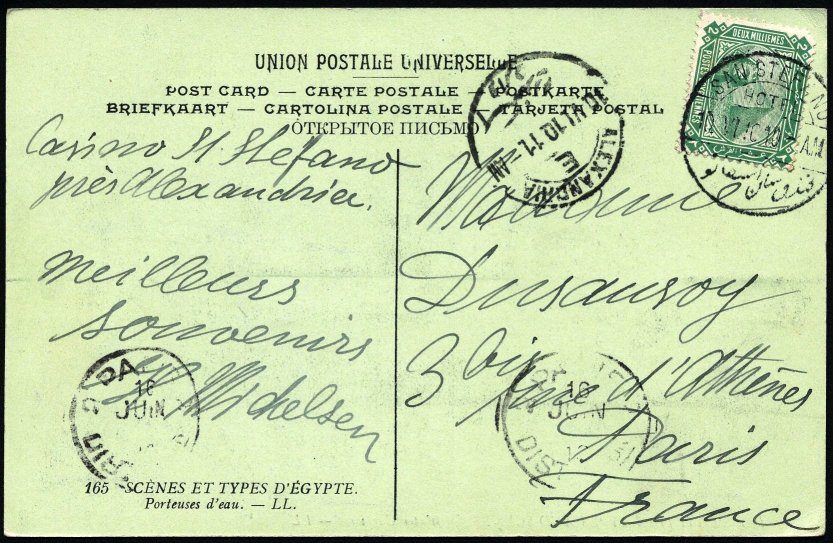 UNION POSTALE UNIVERSELLE
POST CARD — CARTE POSTALE — POSTKARTE
BRIEFKAART — CARTOLINA POSTALE — TARJETA POSTAL
ОТКРЫТОЕ ПИСЬМО
DEUX MILLIEMES
SAN STEFANO
HOTEL
ALEXANDRIA
Casino St Stefano
près Alexandrie.
Meilleurs
souvenirs
Midelsen
Madame
Dusausoy
3 bis rue d'Athènes
Paris
France
16
JUIN
16
JUIN
DIST
165 SCÈNES ET TYPES D'ÉGYPTE.
Porteuses d'eau. — LL.